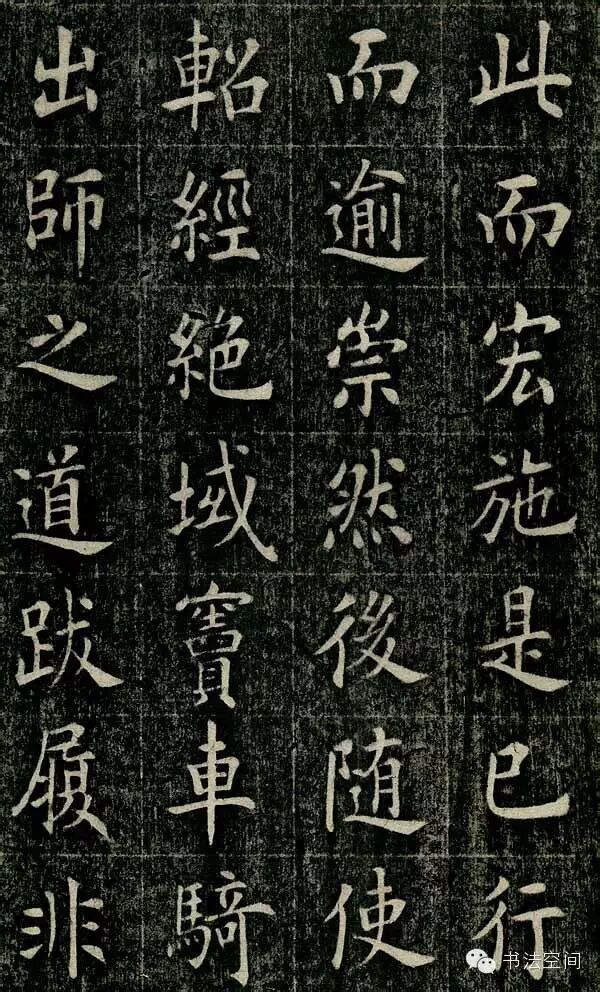 此而宏施是已行
而逾崇然後随使
軺經絶域竇車騎
出師之道跋履非
书法空间